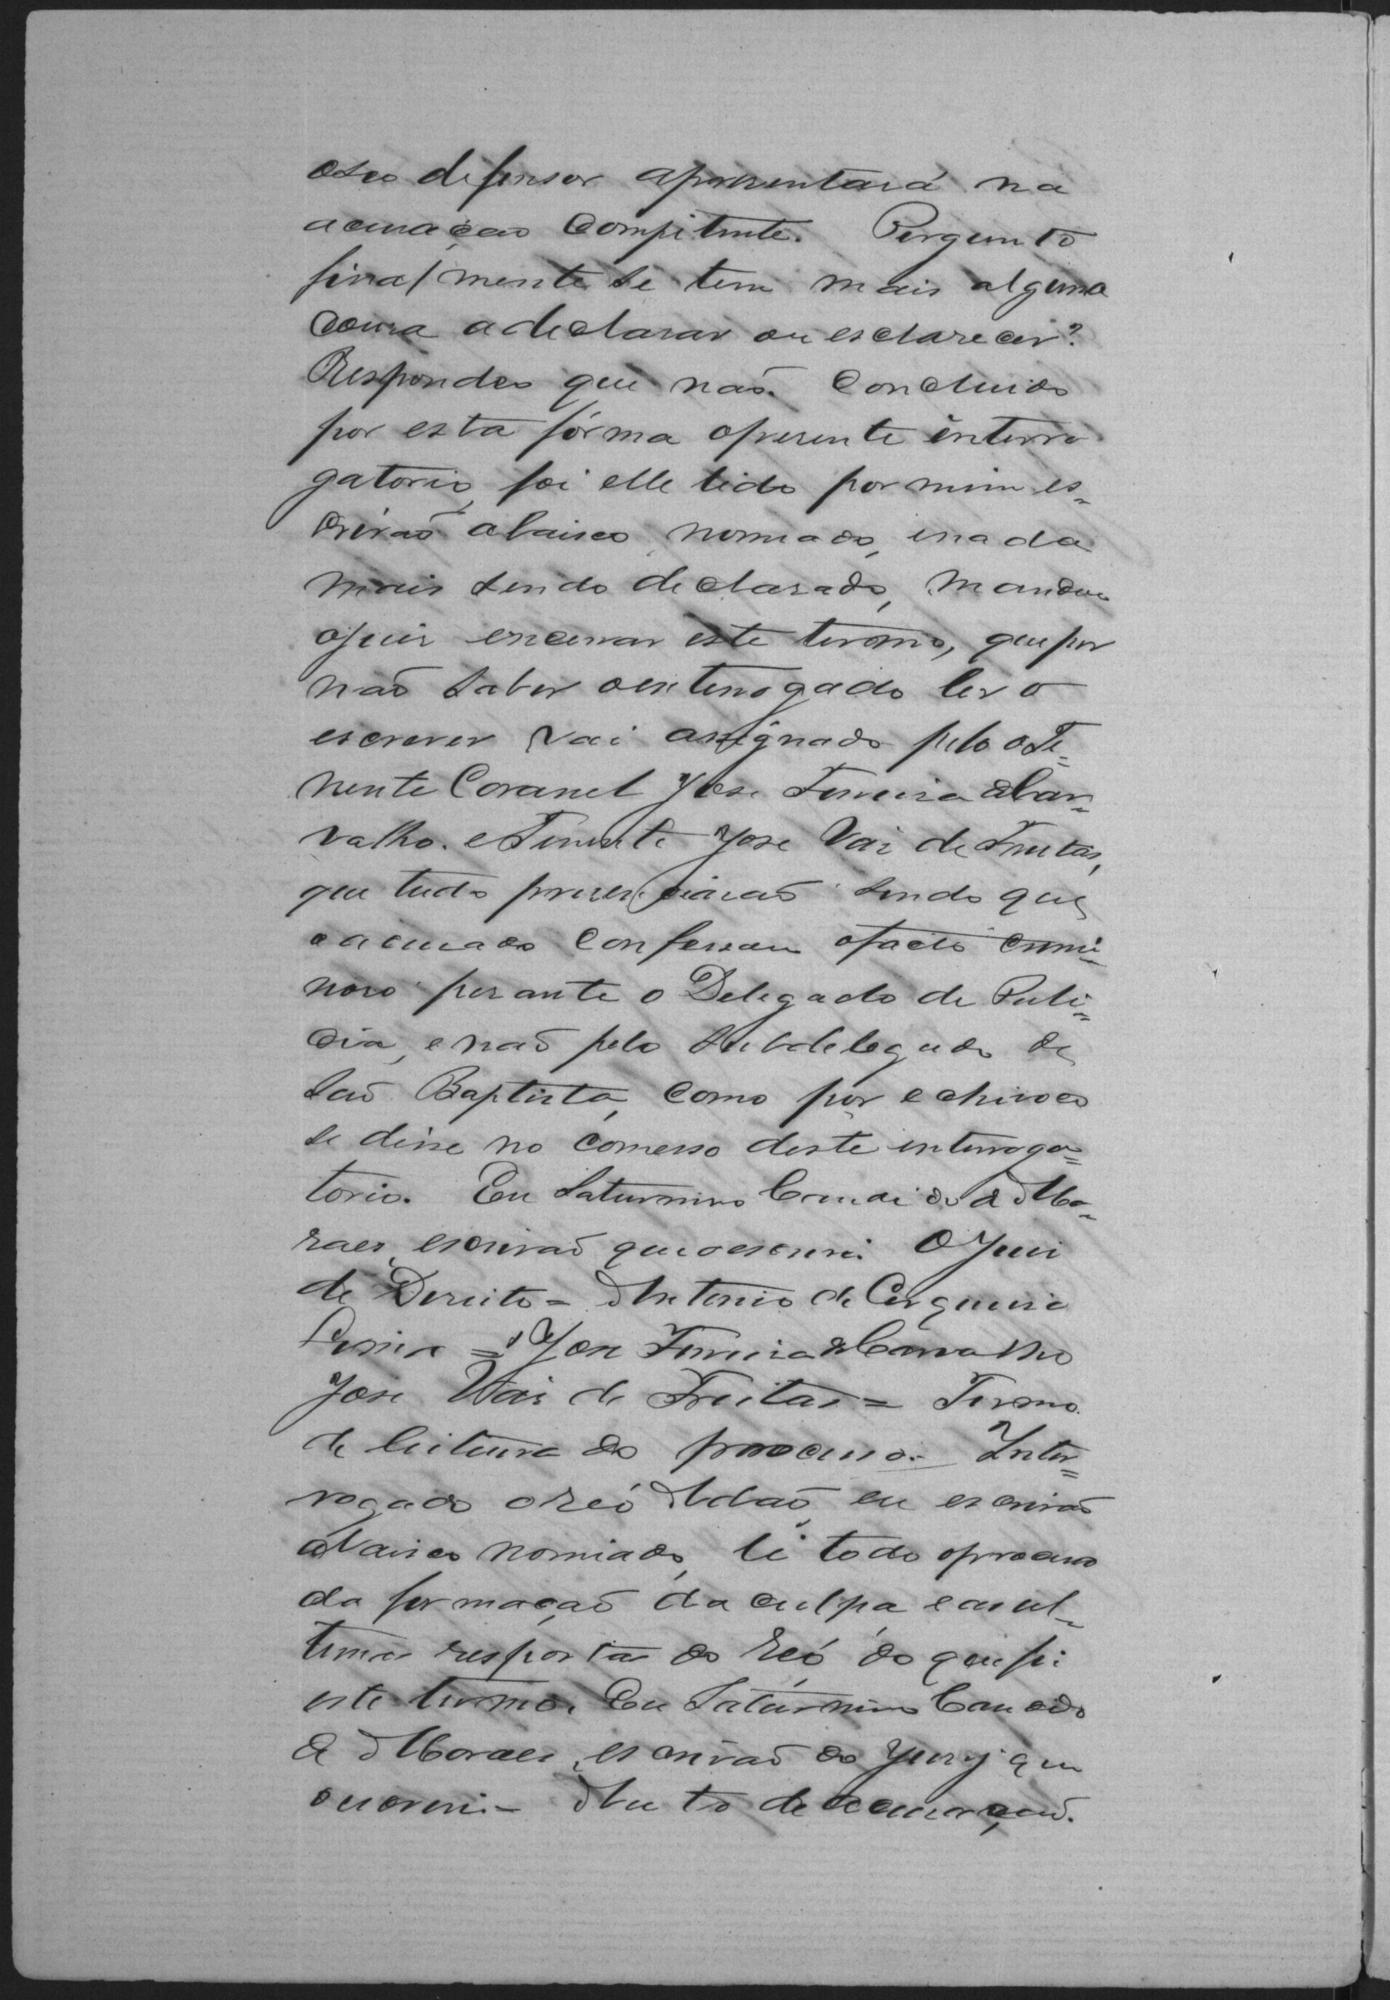 oseo defensor apresentará na
acusação competente. Pergunto
finalmente se tem mais alguma
cousa a declarar ou esclarecer?
Respondeo que não. Concluido
por esta fórma opresente interro
gatorio, foi elle lido por mim es=
crivão abaixo nomiado, enada
mais sendo declarado, mandou
ojuis encerrar este termo, que por
não saber ointerrogado ler o
escrever vai assignado pelo o Te=
nente Coronel José Ferreira de Car=
valho. e Tenente José Vas de Freitas,
que tudo presenciárão sendo que
oacusado confessou ofacto crimi=
noso perante o Delegado de Poli=
cia, e não pelo Subdelegado de
São Baptista, como por echivoco
se disse no comesso deste interroga=
torio. Eu Saturnino Candido de Mo=
raes, escrivão que o escrevi. O Juis
de Dereito = Antonio de Cerqueira
= José Ferreira de Carvalho
José Vas de Freitas = Termo
de leitura do processo. Inter=
rogado oreó Adão, eu escrivão
abaixo nomiado, li todo oprocesso
da formação da culpa e as ul=
timas resposta do reó, do que fis
este termo. Eu Saturnino Candido
de Moraes, escrivão do Jury que
oescrevi = Auto de acusação.